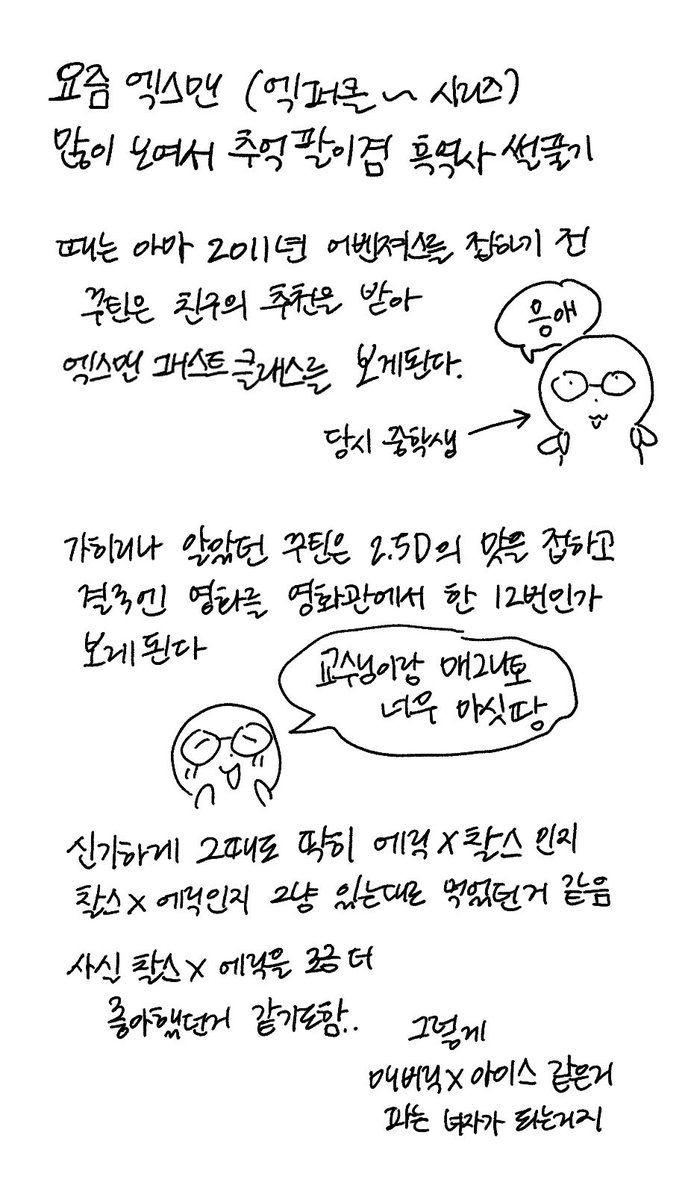 요즘 엑스맨 (엑퍼클~ 시리즈)
많이 보여서 추억팔이겸 흑역사 썰풀기
때는 아마 2011년 어벤져스를 접하기 전
꾸틴은 친구의 추천을 받아
엑스맨 퍼스트클래스를 보게된다.
응애
당시 중학생
가히리나 알았던 꾸틴은 2.5D의 맛을 접하고
결국엔 영화를 영화관에서 한 12번인가
보게된다
교수님이랑 매그니토
너무 마싯땅
신기하게 그때도 딱히 에릭X찰스 인지
찰스X에릭인지 그냥 있는대로 먹었던거 같음
사실 찰스X에릭을 조금 더
좋아했던거 같기도함..
그렇게
매버릭X아이스 같은거
파는 여자가 되는거지